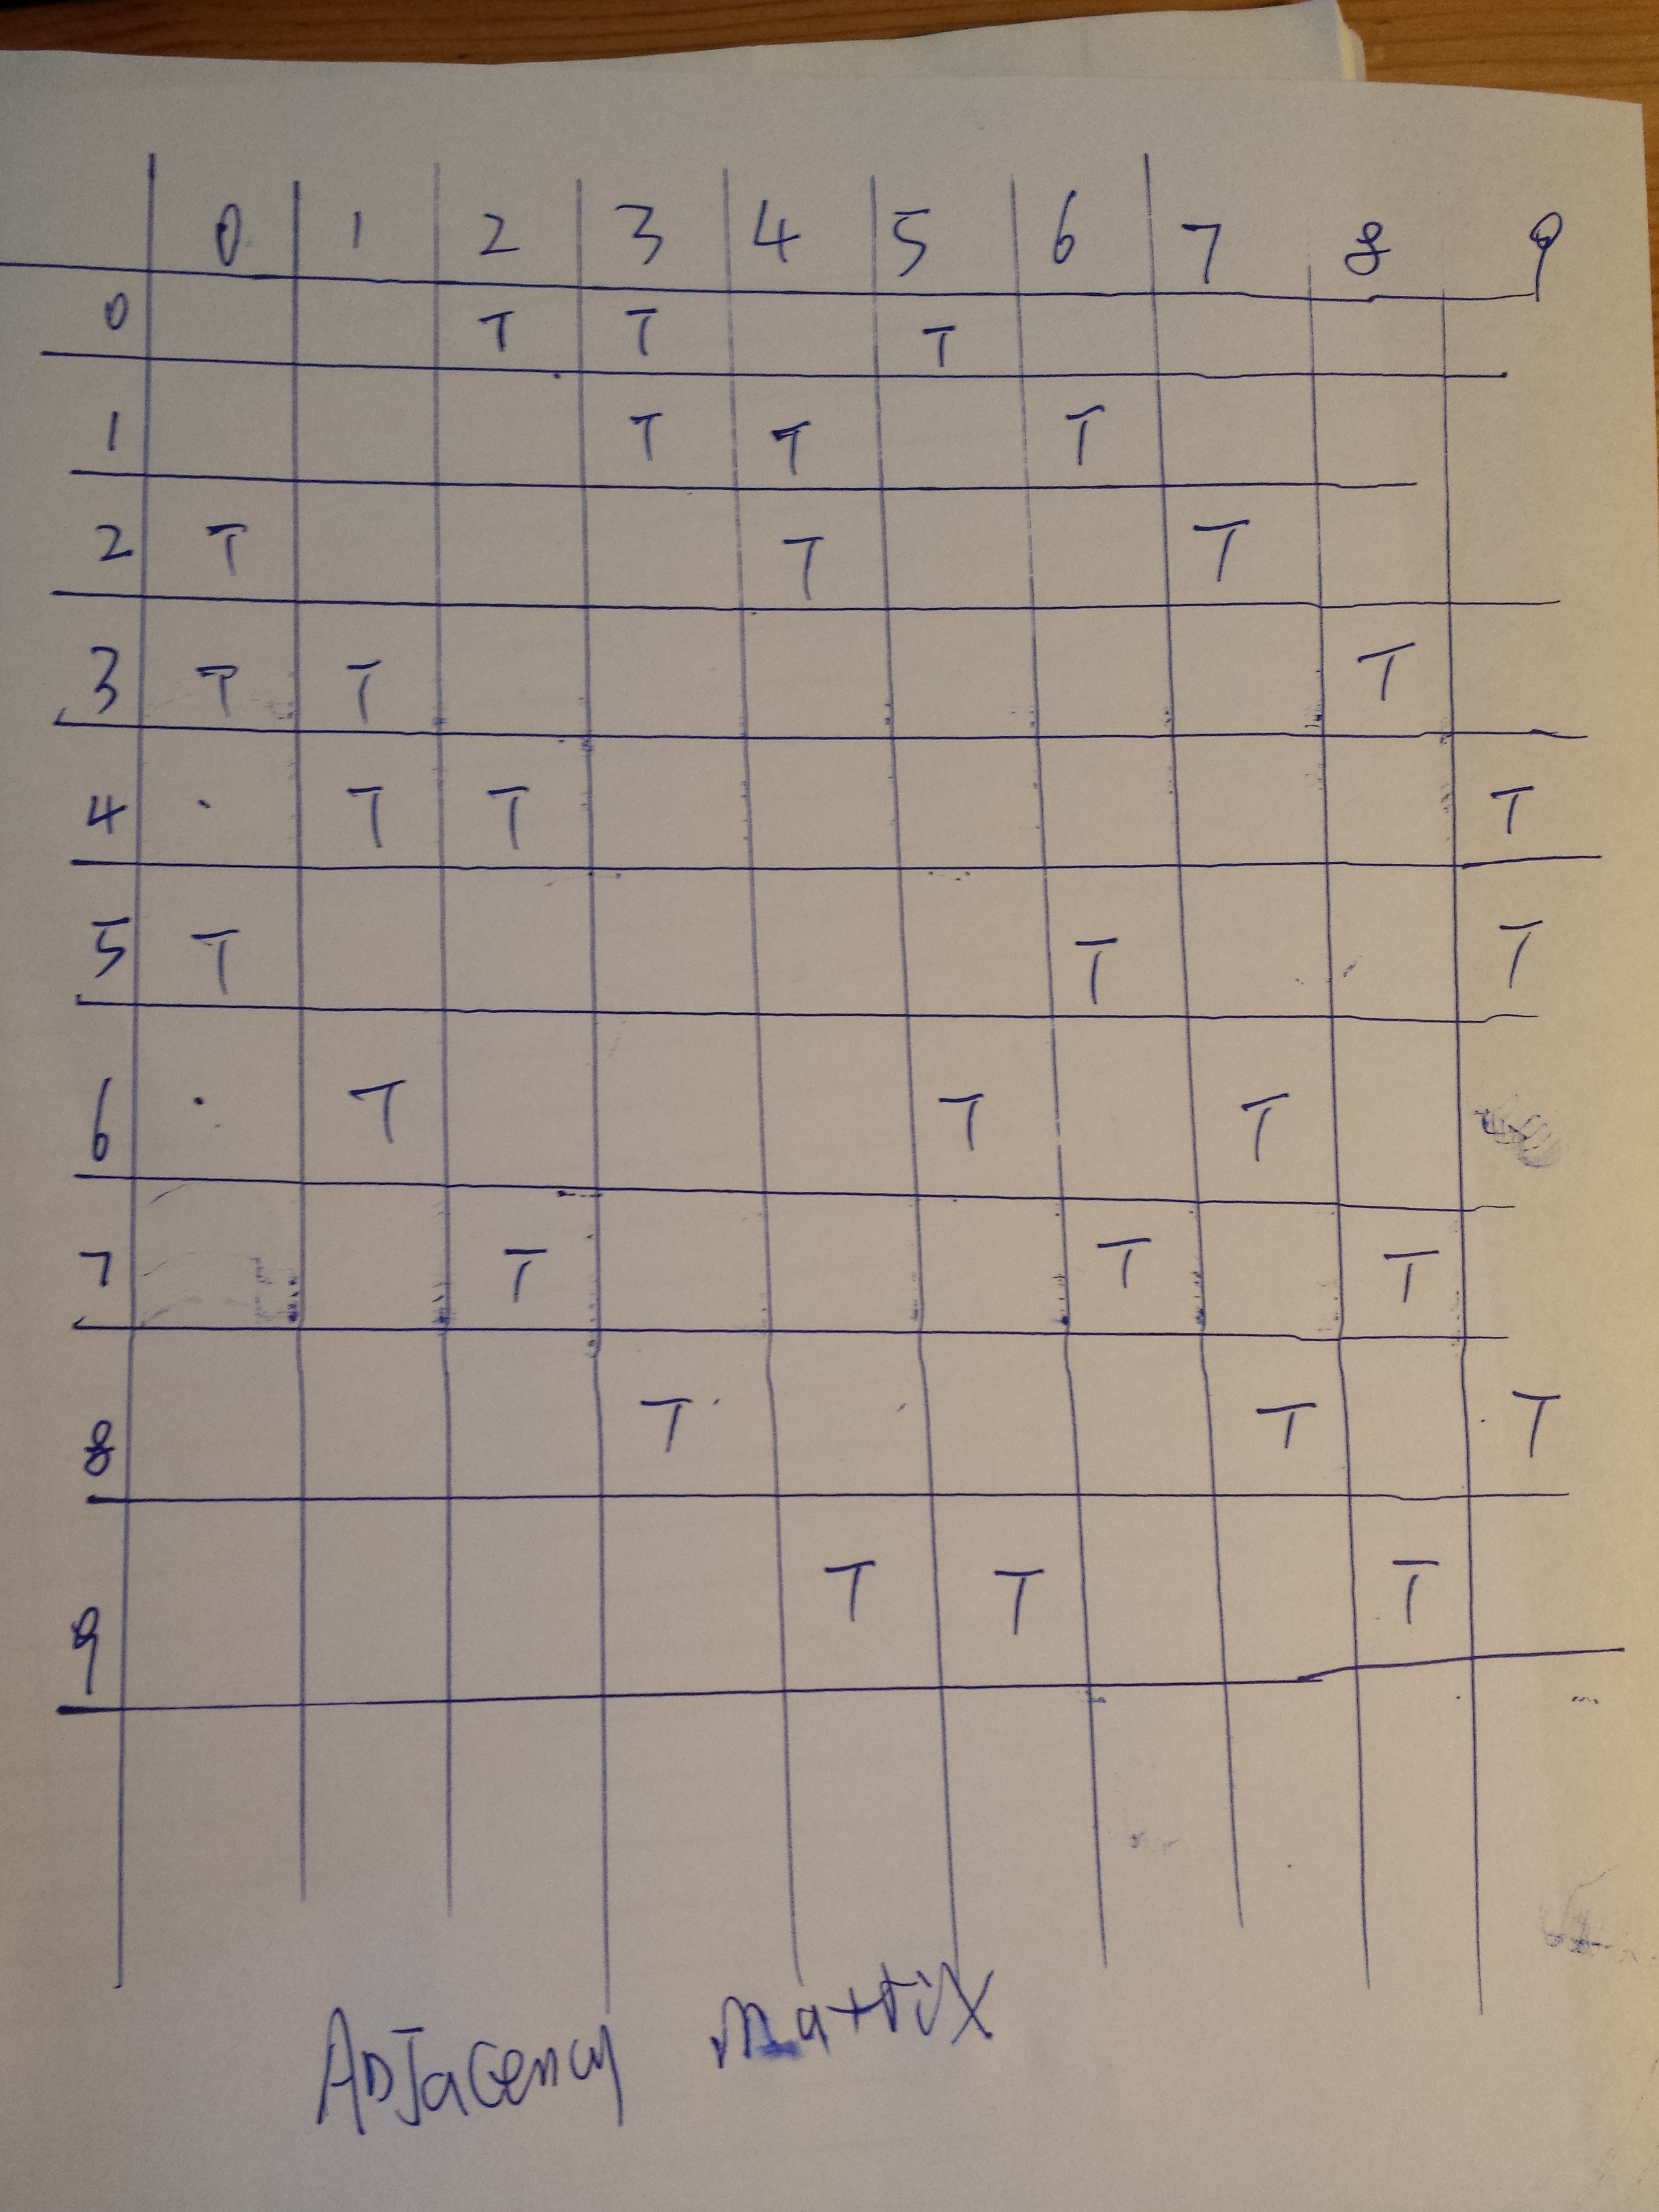 0 1 2 3 4 5 6 7 8 9
0 T T T
1 T T T
2 T T T
3 T T T
4 T T T
5 T T T
6 T T T
7 T T T
8 T T T
9 T T T
ADJacency matrix